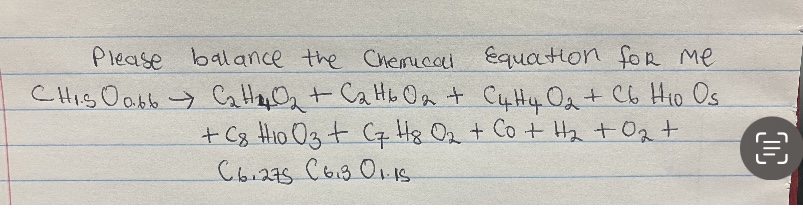 Please balance the Chemical Equation for me
CH1.5 O0.66 → C2H4O2 + C2H6O2 + C4H4O2 + C6 H10 O5
+ C8 H10 O3 + C7 H8 O2 + CO + H2 + O2 +
C6.275 C6.3 O1.15